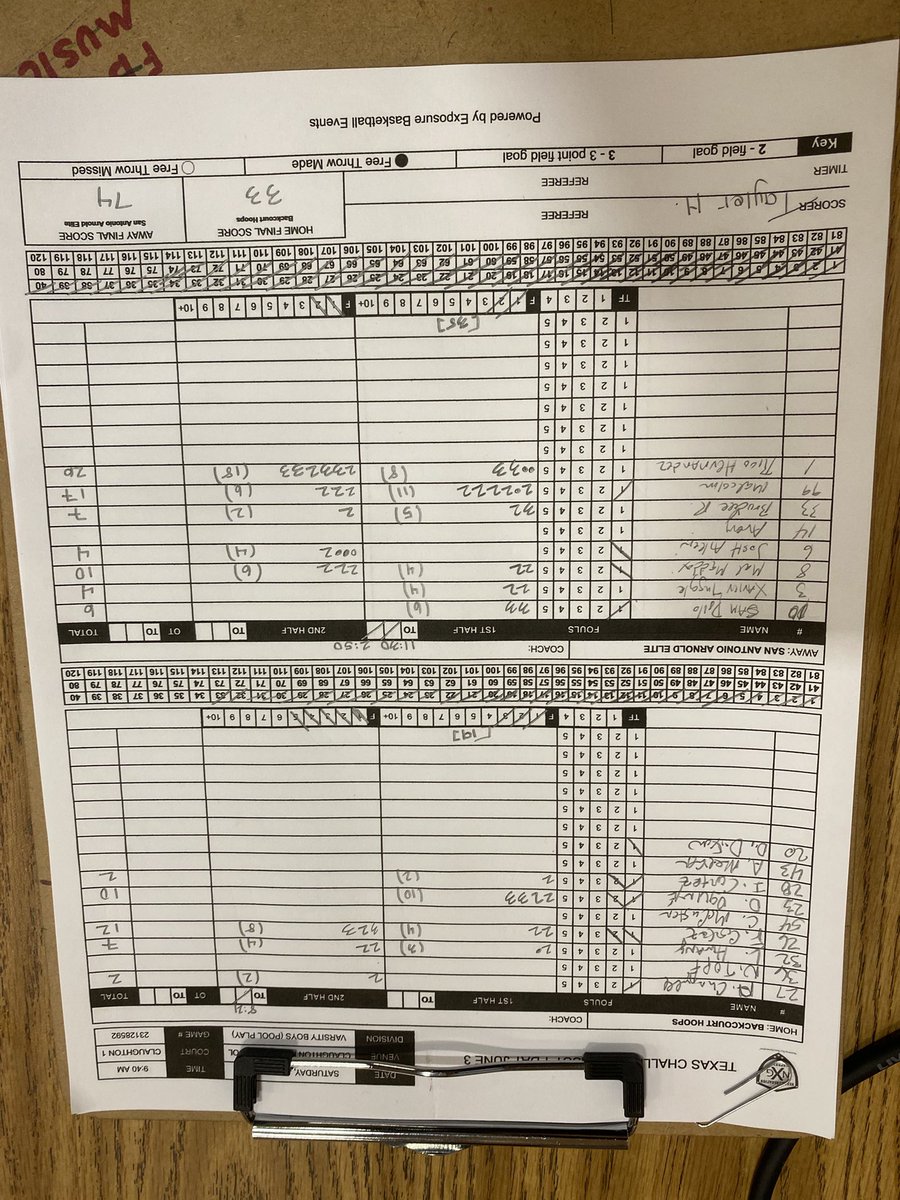 FB
MUSIC
NXG
TEXAS CHALL DAY JUNE 3
DATE SATURDAY, TIME 9:40 AM
VENUE CLAUGHTON COURT CLAUGHTON 1
DIVISION VARSITY BOYS (POOL PLAY) GAME # 23128592
HOME: BACKCOURT HOOPS COACH:
# NAME FOULS 1ST HALF TO 2ND HALF TO OT TO TOTAL
8:21
27 A. 1 2 3 4 5 2 (2) 2
34 1 2 3 4 5
32 1 2 3 4 5 (3) 22 (4) 7
26 1 2 3 4 5 22 (4) 323 (8) 12
54 C. 1 2 3 4 5
23 D. 1 2 3 4 5 2233 (10) 10
28 I. Cortez 1 2 3 4 5 2 (2) 2
43 A. 1 2 3 4 5
20 D. 1 2 3 4 5
1 2 3 4 5
1 2 3 4 5
1 2 3 4 5
1 2 3 4 5
1 2 3 4 5
1 2 3 4 5 [19]
TF 1 2 3 4 F 1 2 3 4 5 6 7 8 9 10+ F 1 2 3 4 5 6 7 8 9 10+
1 2 3 4 5 6 7 8 9 10 11 12 13 14 15 16 17 18 19 20 21 22 23 24 25 26 27 28 29 30 31 32 33 34 35 36 37 38 39 40
41 42 43 44 45 46 47 48 49 50 51 52 53 54 55 56 57 58 59 60 61 62 63 64 65 66 67 68 69 70 71 72 73 74 75 76 77 78 79 80
81 82 83 84 85 86 87 88 89 90 91 92 93 94 95 96 97 98 99 100 101 102 103 104 105 106 107 108 109 110 111 112 113 114 115 116 117 118 119 120
AWAY: SAN ANTONIO ARNOLD ELITE COACH: 2:50
# NAME FOULS 1ST HALF TO 2ND HALF TO OT TO TOTAL
10 SAM 1 2 3 4 5 33 (6) 6
3 Xavier 1 2 3 4 5 22 (4) 4
8 1 2 3 4 5 22 (4) 222 (6) 10
6 Josh 1 2 3 4 5 0002 (4) 4
14 Avery 1 2 3 4 5
33 R 1 2 3 4 5 32 (5) 2 (2) 7
99 Malcolm 1 2 3 4 5 202222 (11) 222 (6) 17
1 Rico Hernandez 1 2 3 4 5 0033 (8) 2333233 (18) 20
1 2 3 4 5
1 2 3 4 5
1 2 3 4 5
1 2 3 4 5
1 2 3 4 5
1 2 3 4 5
1 2 3 4 5 [35]
TF 1 2 3 4 F 1 2 3 4 5 6 7 8 9 10+ F 1 2 3 4 5 6 7 8 9 10+
1 2 3 4 5 6 7 8 9 10 11 12 13 14 15 16 17 18 19 20 21 22 23 24 25 26 27 28 29 30 31 32 33 34 35 36 37 38 39 40
41 42 43 44 45 46 47 48 49 50 51 52 53 54 55 56 57 58 59 60 61 62 63 64 65 66 67 68 69 70 71 72 73 74 75 76 77 78 79 80
81 82 83 84 85 86 87 88 89 90 91 92 93 94 95 96 97 98 99 100 101 102 103 104 105 106 107 108 109 110 111 112 113 114 115 116 117 118 119 120
SCORER Tayler H. REFEREE
HOME FINAL SCORE
Backcourt Hoops
33
AWAY FINAL SCORE
San Antonio Arnold Elite
74
TIMER REFEREE
Key 2 - field goal 3 - 3 point field goal Free Throw Made Free Throw Missed
Powered by Exposure Basketball Events